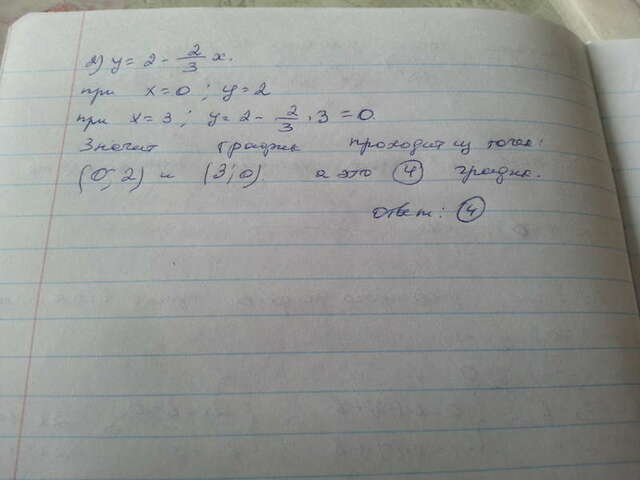 2) y = 2 - 2/3 x.
при x=0 ; y=2
при x=3 ; y=2- 2/3 · 3 =0.
Значит график проходит из точек:
(0; 2) и (3; 0) а это 4 график.
ответ: 4